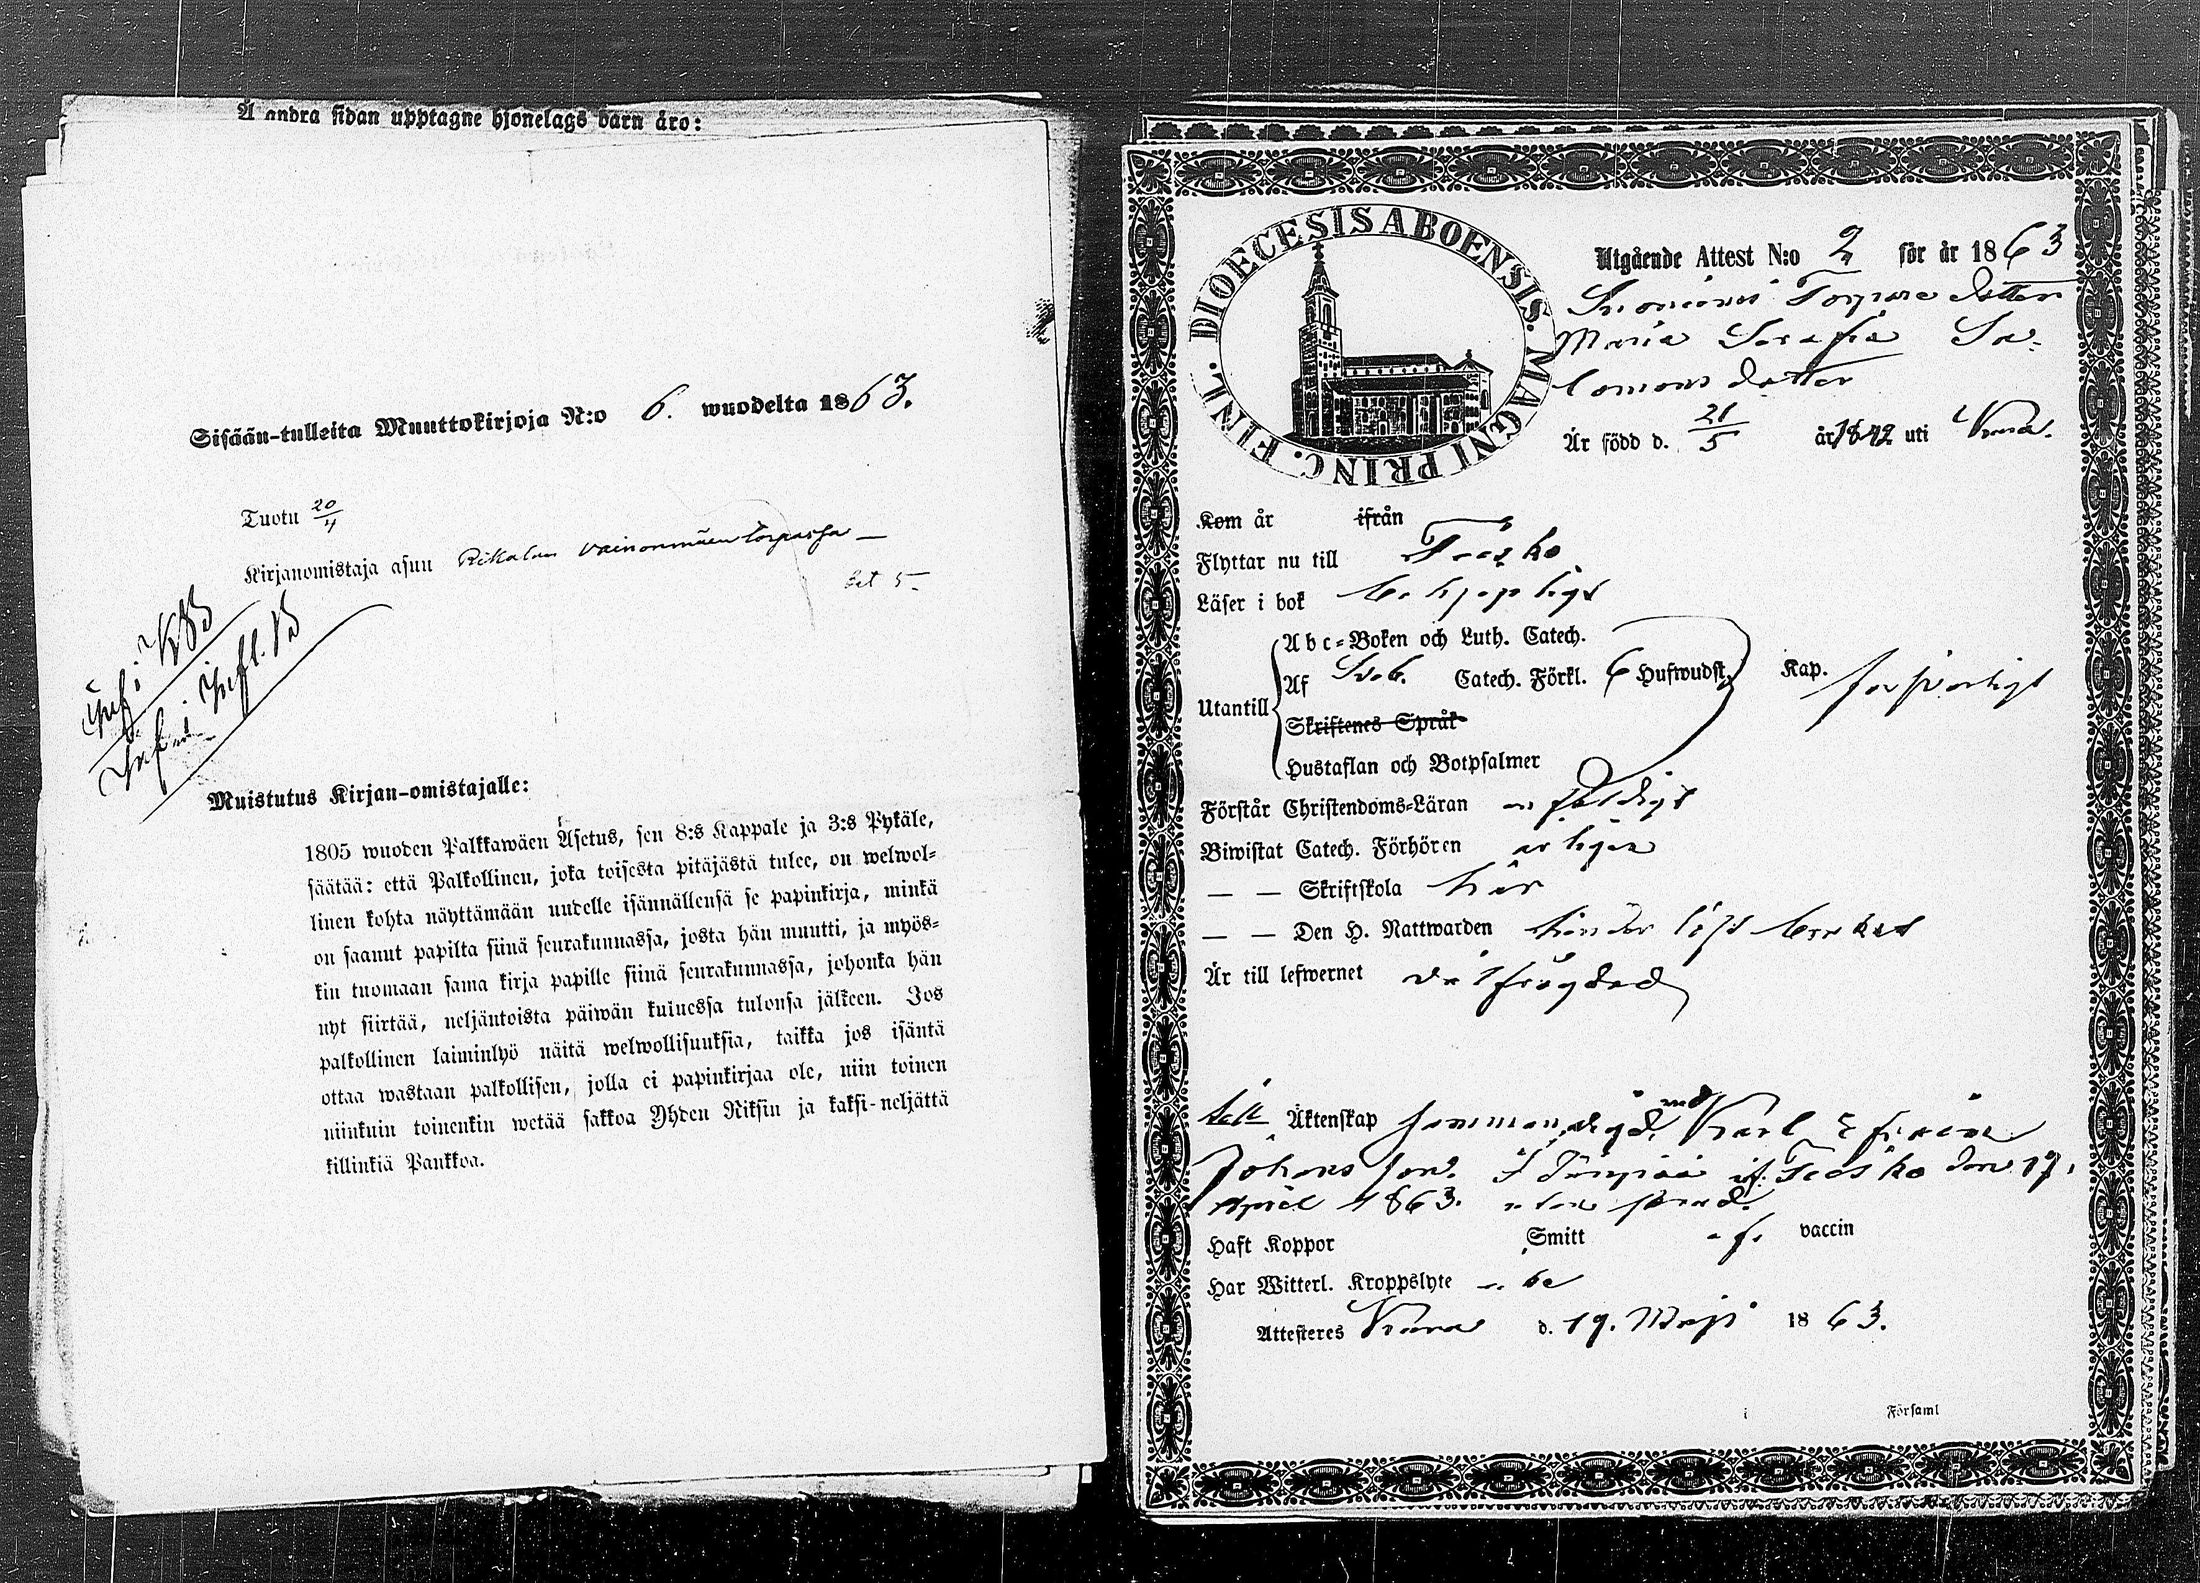 Å andra sidan upptagne hjonelags barn äro:
Sisään-tulleita Muuttokirjoja N:o 6. wuodelta 1863.
Tuotu 20/4
Kirjanomistaja asuu Rikalan Vainonmäen torpassa
5
Inf. i KB
Inf. i Infl. B
Muistutus Kirjan-omistajalle:
1805 wuoden Palkkawäen Asetus, sen 8:s Kappale ja 3:s Pykäle,
säätää: että Palkollinen, joka toisesta pitäjästä tulee, on welwol-
linen kohta näyttämään uudelle isännällensä se papinkirja, minkä
on saanut papilta siinä seurakunnassa, josta hän muutti, ja myös-
kin tuomaan sama kirja papille siinä seurakunnassa, johonka hän
nyt siirtää, neljäntoista päiwän kuluessa tulonsa jälkeen. Jos
palkollinen laiminlyö näitä welwollisuuksia, taikka jos isäntä
ottaa wastaan palkollisen, jolla ei papinkirjaa ole, niin toinen
niinkuin toinenkin wetää sakkoa Yhden Riksin ja kaksi-neljättä
killinkiä Pankkoa.
DIOECESIS ABOENSIS. MAGNI PRINC. FINL.
Utgående Attest N:o 2 för år 1863
Torpare dotter
Maria Serafia Sa-
lomons dotter
Är född d. 21/5 år 1842 uti
Kom år ifrån
Flyttar nu till Teisko
Läser i bok behjelpligt
Abc-Boken och Luth. Catech.
Utantill Af Sveb. Catech. Förkl. 6 Hufwudst. Kap. försvarligt
Skriftenes Språk
Hustaflan och Botpsalmer
Förstår Christendoms-Läran enfaldigt
Biwistat Catech. Förhören årligen
— — Skriftskola här
— — Den H. Nattwarden
Är till lefwernet välfrägdad
till Äktenskap sammanvigd med Karl Efraim
Johansson i Teisko den 17.
April 1863. utan
Haft Koppor Smitt af vaccin
Har Witterl. Kroppslyte
Attesteres d. 19. Maji 1863.
Församl